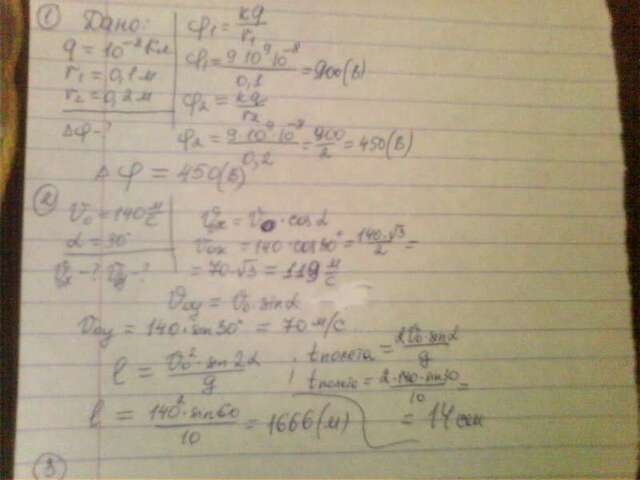 ① Дано:
q = 10⁻⁸ Кл
r₁ = 0,1 м
r₂ = 0,2 м
Δφ - ?
φ₁ = kq/r₁
φ₁ = 9·10⁹·10⁻⁸/0,1 = 900(В)
φ₂ = kq/r₂
φ₂ = 9·10⁹·10⁻⁸/0,2 = 900/2 = 450(В)
Δφ = 450(В)
②
V₀ = 140 м/с
α = 30°
Vx - ? Vy - ?
V₀x = V₀ · cos α
V₀x = 140 · cos 30° = 140·√3/2 =
= 70·√3 = 119 м/с
V₀y = V₀ · sin α
V₀y = 140 · sin 30° = 70 м/с
l = V₀² · sin 2α/g ;
tполета = 2V₀·sin α/g
tполета = 2·140·sin 30/10 =
= 14 сек
l = 140² · sin 60/10 = 1666(м)
③